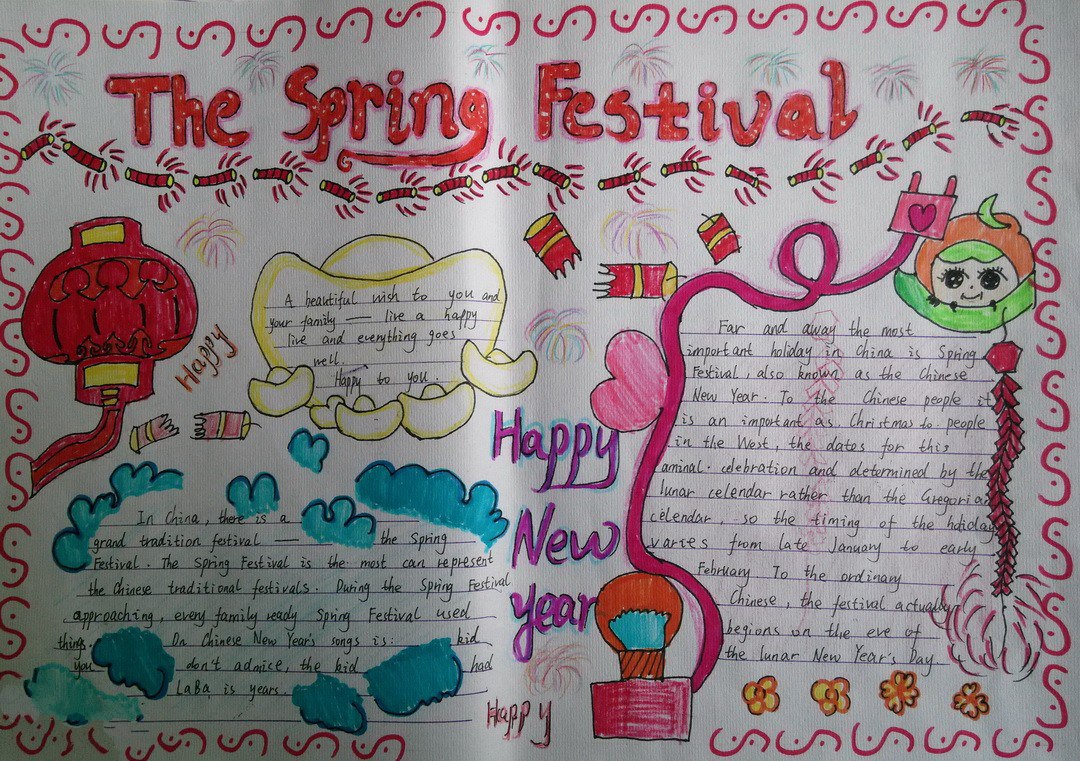 The Spring Festival
Happy
A beautiful wish to you and
your family — live a happy
live and everything goes
well.
Happy to you.
Happy
New
year
In China, there is a
grand tradition festival — the Spring
Festival. The Spring Festival is the most can represent
the Chinese traditional festivals. During the Spring Festival
approaching, every family ready Spring Festival used
things. On Chinese New Year's songs is: kid
you don't admice, the kid had
LaBa is years.
Happy
Far and away the most
important holiday in China is Spring
Festival, also known as the Chinese
New Year. To the Chinese people it
is an important as Christmas to people
in the West, the dates for this
aminal. celebration and determined by the
lunar celendar rather than the Gregoria
celendar, so the timing of the holiday
varies from late January to early
February To the ordinary
Chinese, the festival actually
begions on the eve of
the lunar New Year's Day.